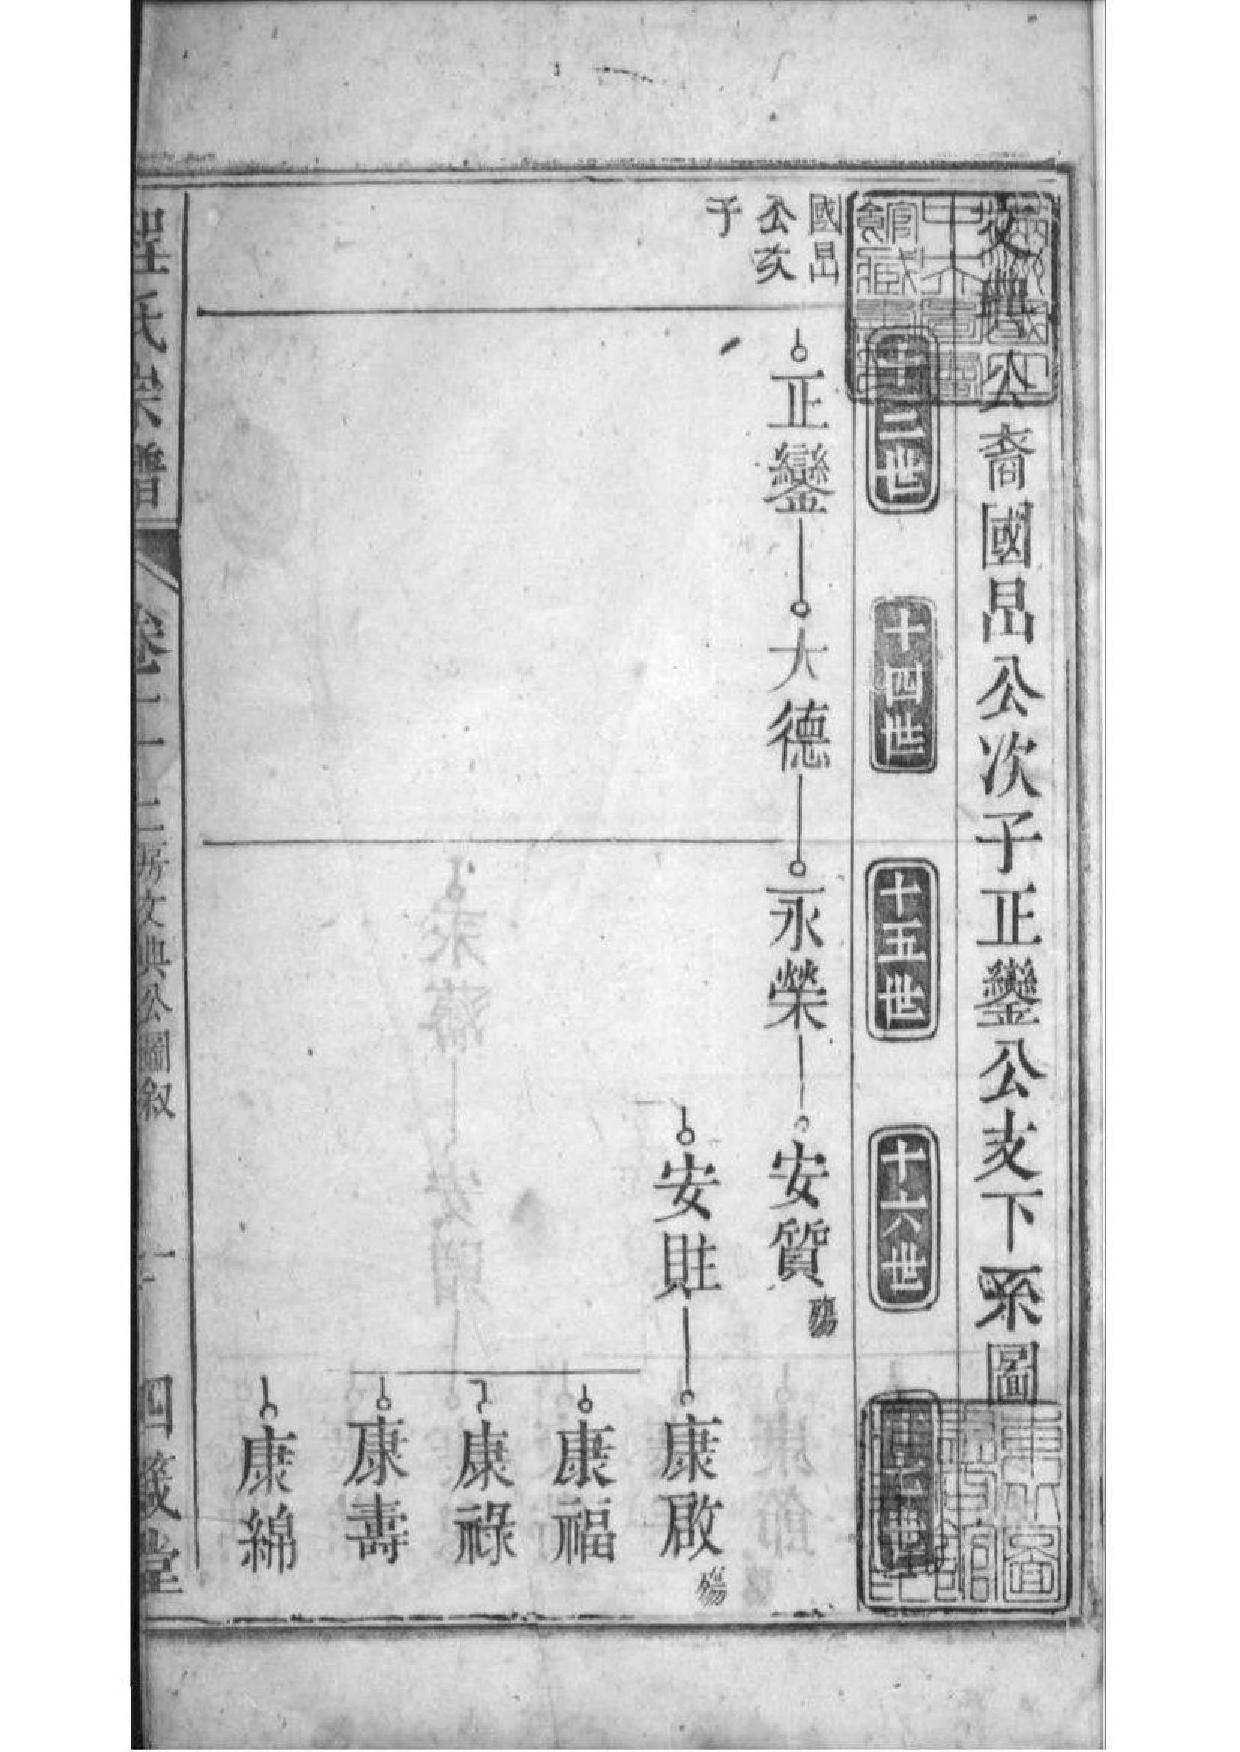 文典公裔國昌公次子正鑾公支下系圖
十三世
十四世
十五世
十六世
十七世
國昌
公次
子
正鑾
大德
永榮
安質 殤
安貹
康啟 殤
康福
康祿
康壽
康綿
程氏宗譜
卷十一 二房文典公圖叙
四箴堂